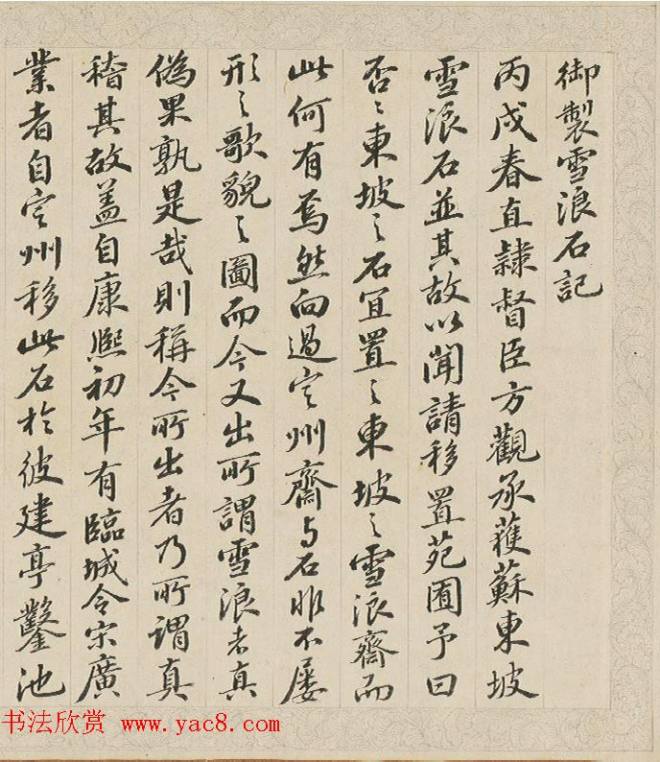 御製雪浪石記
丙戌春直隸督臣方觀承獲蘇東坡
雪浪石並其故以聞請移置苑囿予曰
否〻東坡之石宜置之東坡之雪浪齋而
此何有焉然向過定州齋与石咏不屡
形之歌貌之圖而今又出所謂雪浪者真
僞果孰是哉則稱今所出者乃所謂真
稽其故盖自康熙初年有臨城令宋廣
業者自定州移此石於彼建亭鑿池
书法欣赏 www.yac8.com